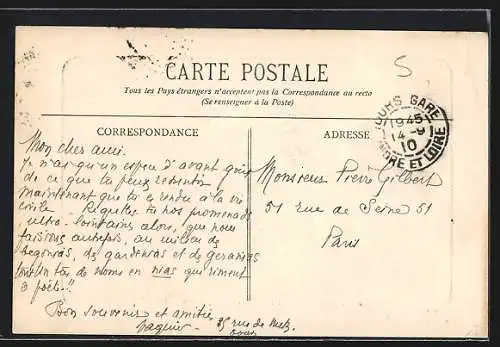 CARTE POSTALE
Tous les Pays étrangers n'acceptent pas la Correspondance au recto
(Se renseigner à la Poste)
CORRESPONDANCE
ADRESSE
5
TOURS GARE
1945
14-9
10
INDRE ET LOIRE
Mon cher ami.
Je n'ai qu'un espoir d'avant goût
de ce que tu peux ressentir
maintenant que tu es rendu à la vie
civile. Regrettes tu nos promenades
ultra-lointaines alors, que nous
faisions autrefois, au milieu de
begonias, de gardenias et de geranias
tout un tas de noms en nias qui riment
ô poète!"
Bon souvenir et amitiés
25 rue de Metz
Tours
Monsieur Pierre Gilbert
51 rue de Seine 51
Paris